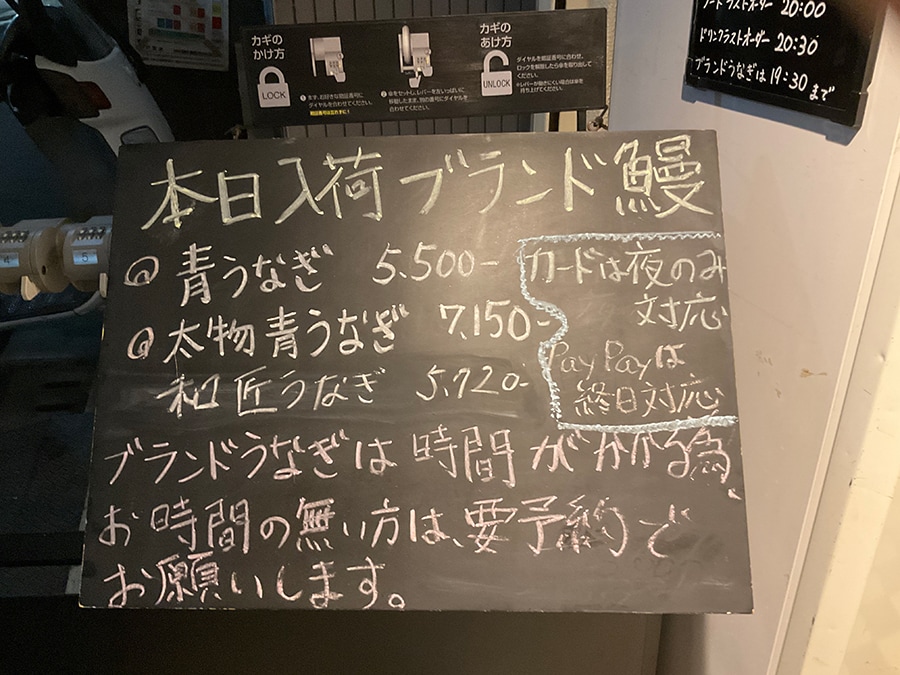 カギの
かけ方
LOCK
カギの
あけ方
UNLOCK
ダイヤルを暗証番号に合わせ、
ロックを解除したら傘を取り出して
ください。
ドリンクラストオーダー 20:30
ブランドうなぎは 19:30 まで
本日入荷ブランド鰻
青うなぎ 5.500-
太物青うなぎ 7.150-
和匠うなぎ 5.720-
カードは夜のみ
対応
PayPayは
終日対応
ブランドうなぎは時間がかかる為、
お時間の無い方は、要予約で
お願いします。